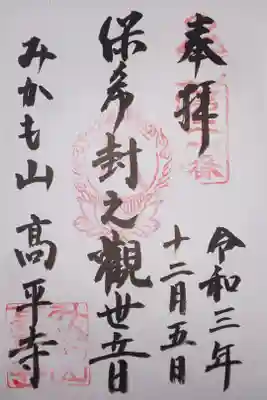 奉拝
令和三年
十二月五日
保希封之観世音
みかも山 高平寺